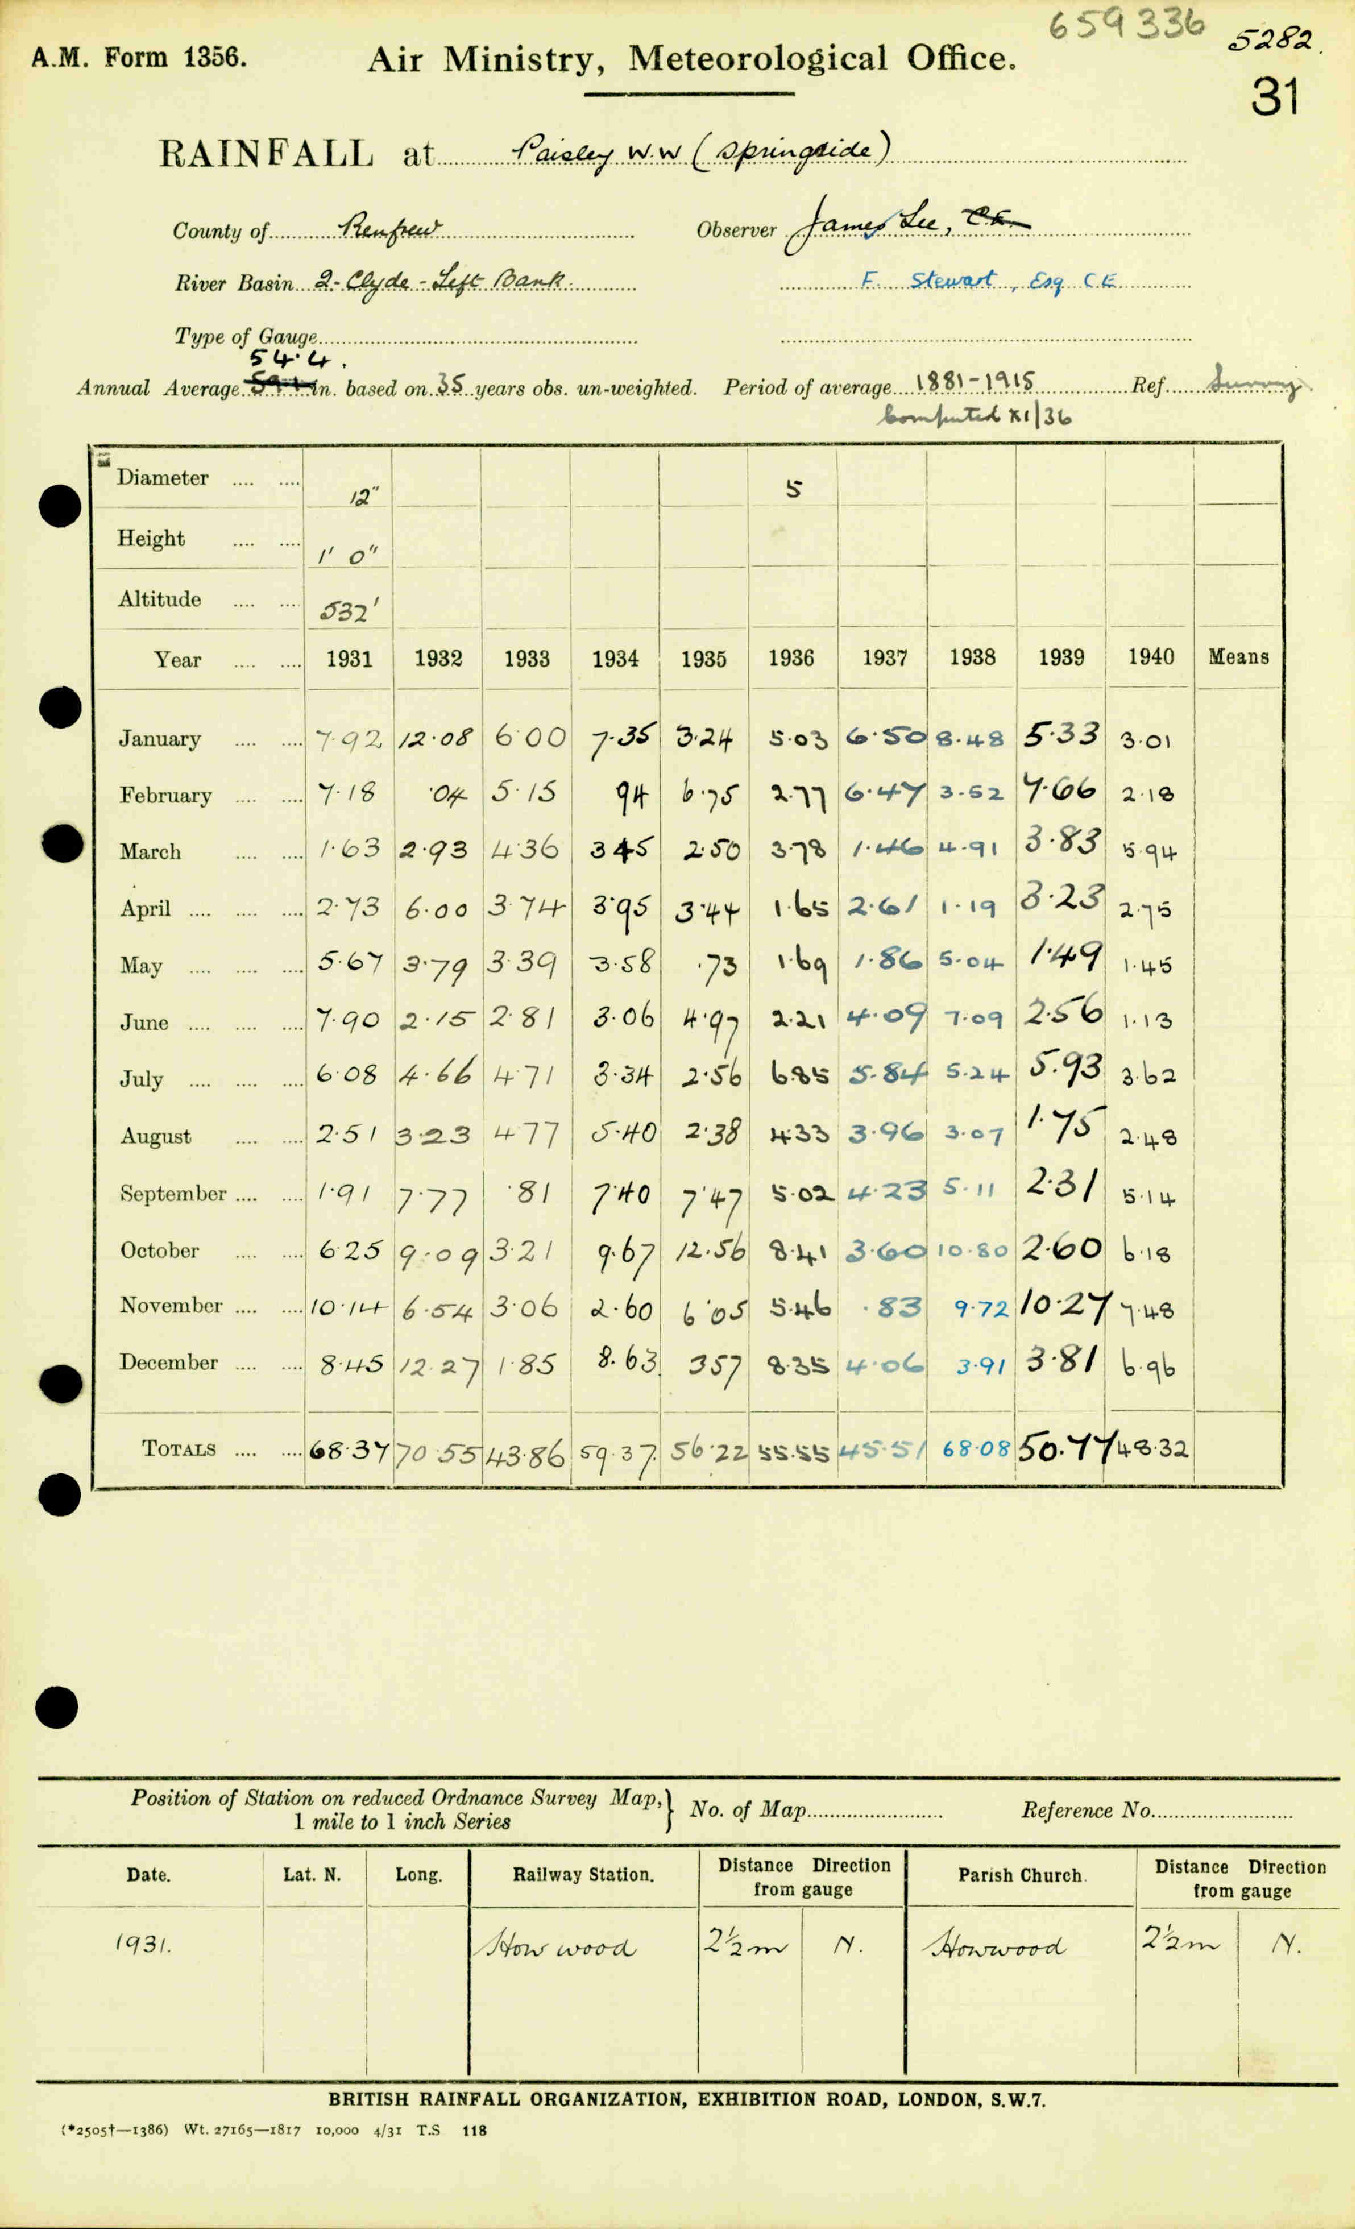 659336
5282.
A.M. Form 1356.
Air Ministry, Meteorological Office.
31
RAINFALL at Paisley W.W (Springside)
County of Renfrew
Observer James Lee, C.E.
River Basin 2-Clyde - Left Bank.
F. Stewart, Esq C E
Type of Gauge
54.4.
Annual Average in. based on 35 years obs. un-weighted. Period of average 1881-1915 Ref. Survey
Computed XI/36
Diameter 12" 5
Height 1' 0"
Altitude 532'
Year 1931 1932 1933 1934 1935 1936 1937 1938 1939 1940 Means
January 7.92 12.08 6.00 7.35 3.24 5.03 6.50 8.48 5.33 3.01
February 7.18 .04 5.15 94 6.75 2.77 6.47 3.52 7.66 2.18
March 1.63 2.93 4.36 3.45 2.50 3.78 1.46 4.91 3.83 5.94
April 2.73 6.00 3.74 3.95 3.44 1.65 2.61 1.19 3.23 2.75
May 5.67 3.79 3.39 3.58 .73 1.69 1.86 5.04 1.49 1.45
June 7.90 2.15 2.81 3.06 4.97 2.21 4.09 7.09 2.56 1.13
July 6.08 4.66 4.71 3.34 2.56 6.85 5.84 5.24 5.93 3.62
August 2.51 3.23 4.77 5.40 2.38 4.33 3.96 3.07 1.75 2.48
September 1.91 7.77 .81 7.40 7.47 5.02 4.23 5.11 2.31 5.14
October 6.25 9.09 3.21 9.67 12.56 8.41 3.60 10.80 2.60 6.18
November 10.14 6.54 3.06 2.60 6.05 5.46 .83 9.72 10.27 7.48
December 8.45 12.27 1.85 8.63 3.57 8.35 4.06 3.91 3.81 6.96
TOTALS 68.37 70.55 43.86 59.37 56.22 55.55 45.51 68.08 50.77 48.32
Position of Station on reduced Ordnance Survey Map, 1 mile to 1 inch Series } No. of Map Reference No.
Date. Lat. N. Long. Railway Station. Distance Direction from gauge Parish Church. Distance Direction from gauge
1931. Howwood 2½m N. Howwood 2½m N.
BRITISH RAINFALL ORGANIZATION, EXHIBITION ROAD, LONDON, S.W.7.
(*2505†—1386) Wt. 27165—1817 10,000 4/31 T.S 118